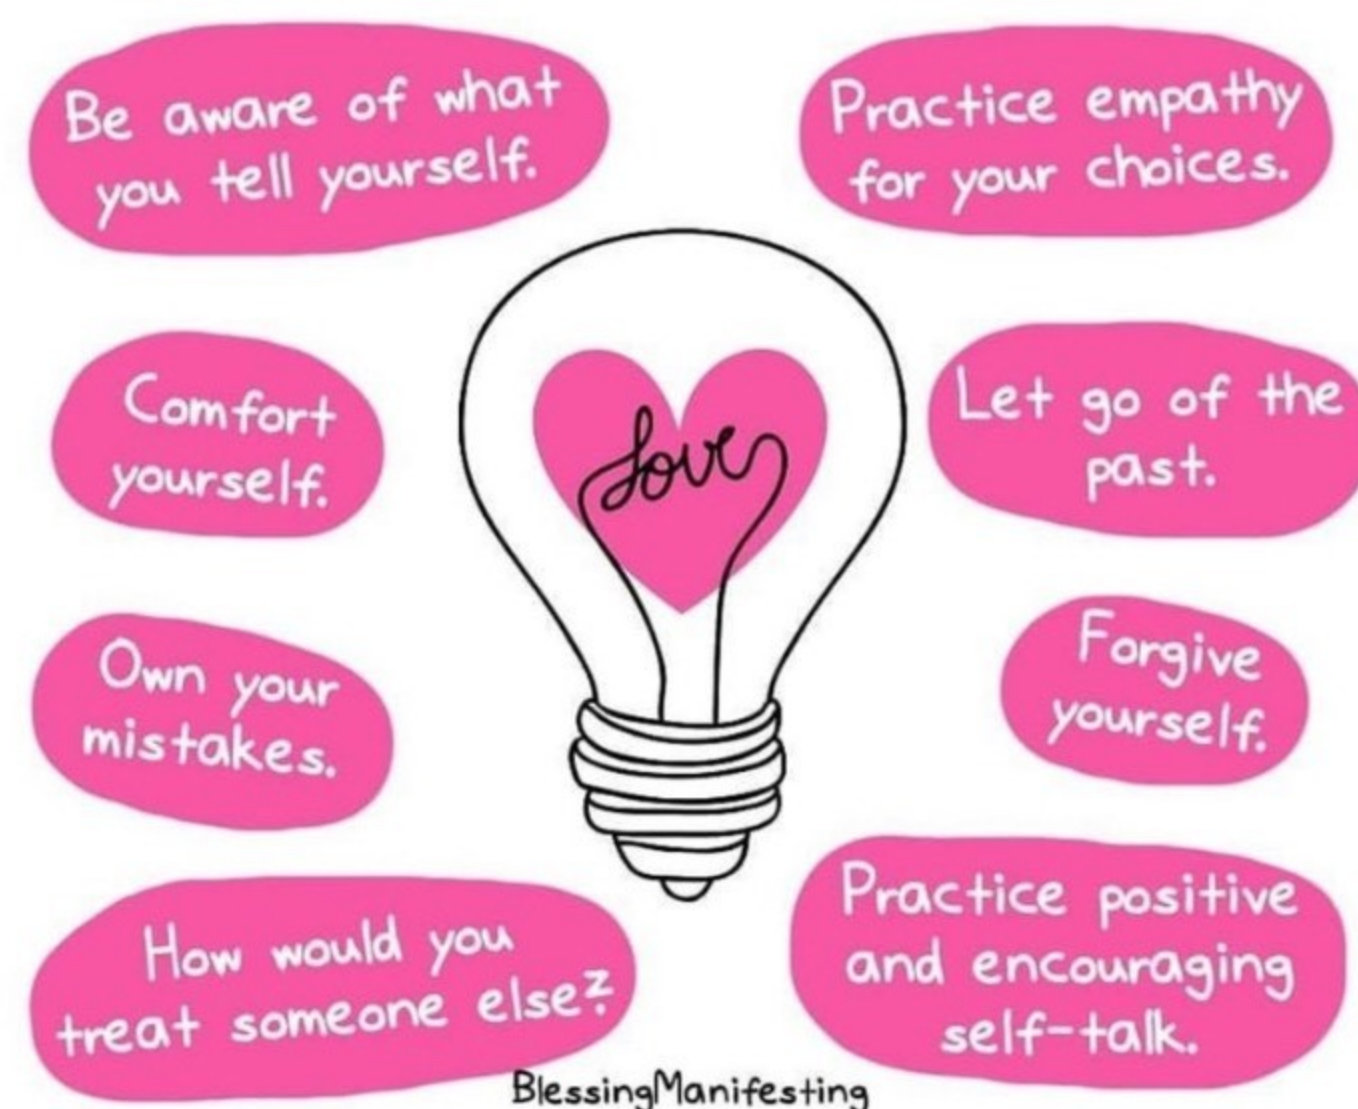 Be aware of what
you tell yourself.
Practice empathy
for your choices.
Comfort
yourself.
Let go of the
past.
Love
Own your
mistakes.
Forgive
yourself.
How would you
treat someone else?
Practice positive
and encouraging
self-talk.
BlessingManifesting